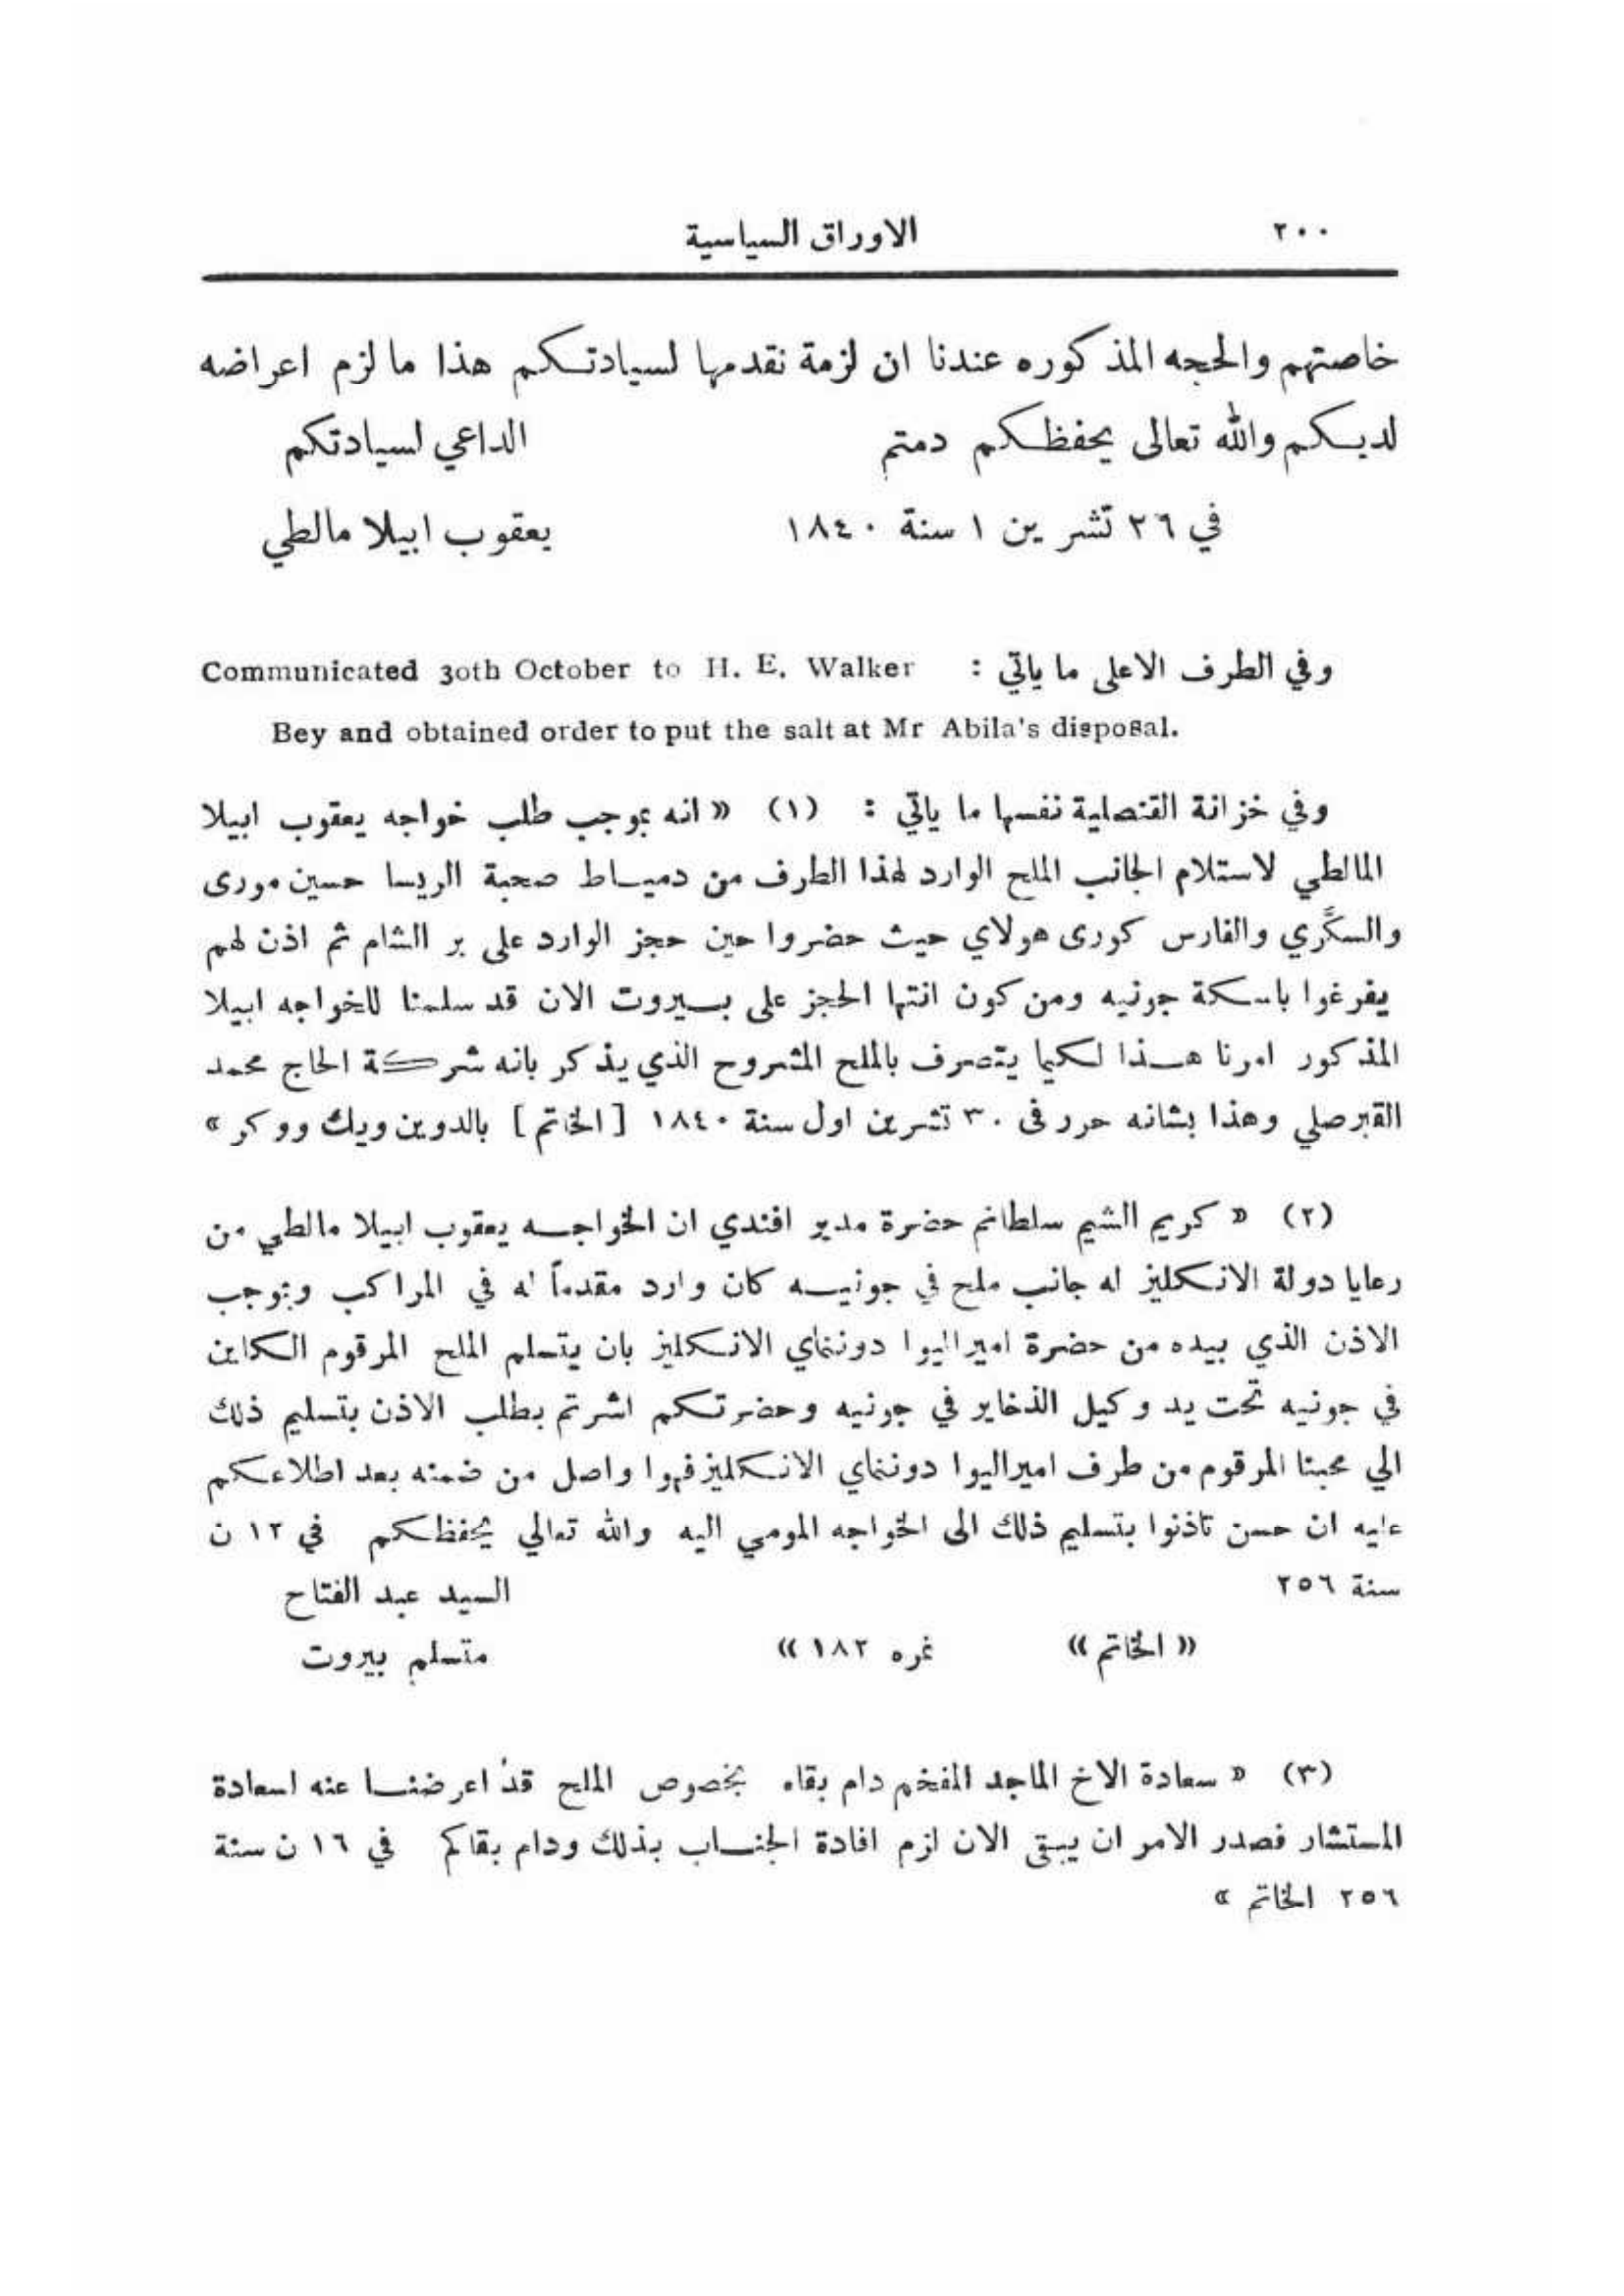 ٢٠٠ الاوراق السياسية
خاصتهم والحجه المذكوره عندنا ان لزمة نقدمها لسيادتكم هذا ما لزم اعراضه
لديكم والله تعالى يحفظكم دمتم الداعي لسيادتكم
في ٢٦ تشرين ١ سنة ١٨٤٠ يعقوب ابيلا مالطي
وفي الطرف الاعلى ما ياتي : Communicated 30th October to H. E. Walker
Bey and obtained order to put the salt at Mr Abila's disposal.
وفي خزانة القنصلية نفسها ما ياتي : (١) « انه بموجب طلب خواجه يعقوب ابيلا
المالطي لاستلام الجانب الملح الوارد لهذا الطرف من دمياط صحبة الريسا حسين مورى
والسكَّري والفارس كورى هولاي حيث حضروا حين حجز الوارد على بر الشام ثم اذن لهم
يفرغوا باسكة جونيه ومن كون انتها الحجز على بيروت الان قد سلمنا للخواجه ابيلا
المذكور امرنا هذا لكيما يتصرف بالملح المشروح الذي يذكر بانه شركة الحاج محمد
القبرصلي وهذا بشانه حرر فى ٣٠ تشرين اول سنة ١٨٤٠ [ الخاتم ] بالدوين ويك ووكر »
(٢) « كريم الشيم سلطانم حضرة مدير افندي ان الخواجه يعقوب ابيلا مالطي من
رعايا دولة الانكليز له جانب ملح في جونيه كان وارد مقدماً له في المراكب وبموجب
الاذن الذي بيده من حضرة اميراليوا دوننماي الانكليز بان يتسلم الملح المرقوم الكاين
في جونيه تحت يد وكيل الذخاير في جونيه وحضرتكم اشرتم بطلب الاذن بتسليم ذلك
الي محبنا المرقوم من طرف اميراليوا دوننماي الانكليز فهوا واصل من ضمنه بعد اطلاعكم
عليه ان حسن تاذنوا بتسليم ذلك الى الخواجه المومي اليه والله تعالي يحفظكم في ١٢ ن
سنة ٢٥٦ السيد عبد الفتاح
« الخاتم » نمره ١٨٢ » متسلم بيروت
(٣) « سعادة الاخ الماجد المفخم دام بقاه بخصوص الملح قد اعرضنا عنه لسعادة
المستشار فصدر الامر ان يبقى الان لزم افادة الجناب بذلك ودام بقاكم في ١٦ ن سنة
٢٥٦ الخاتم »